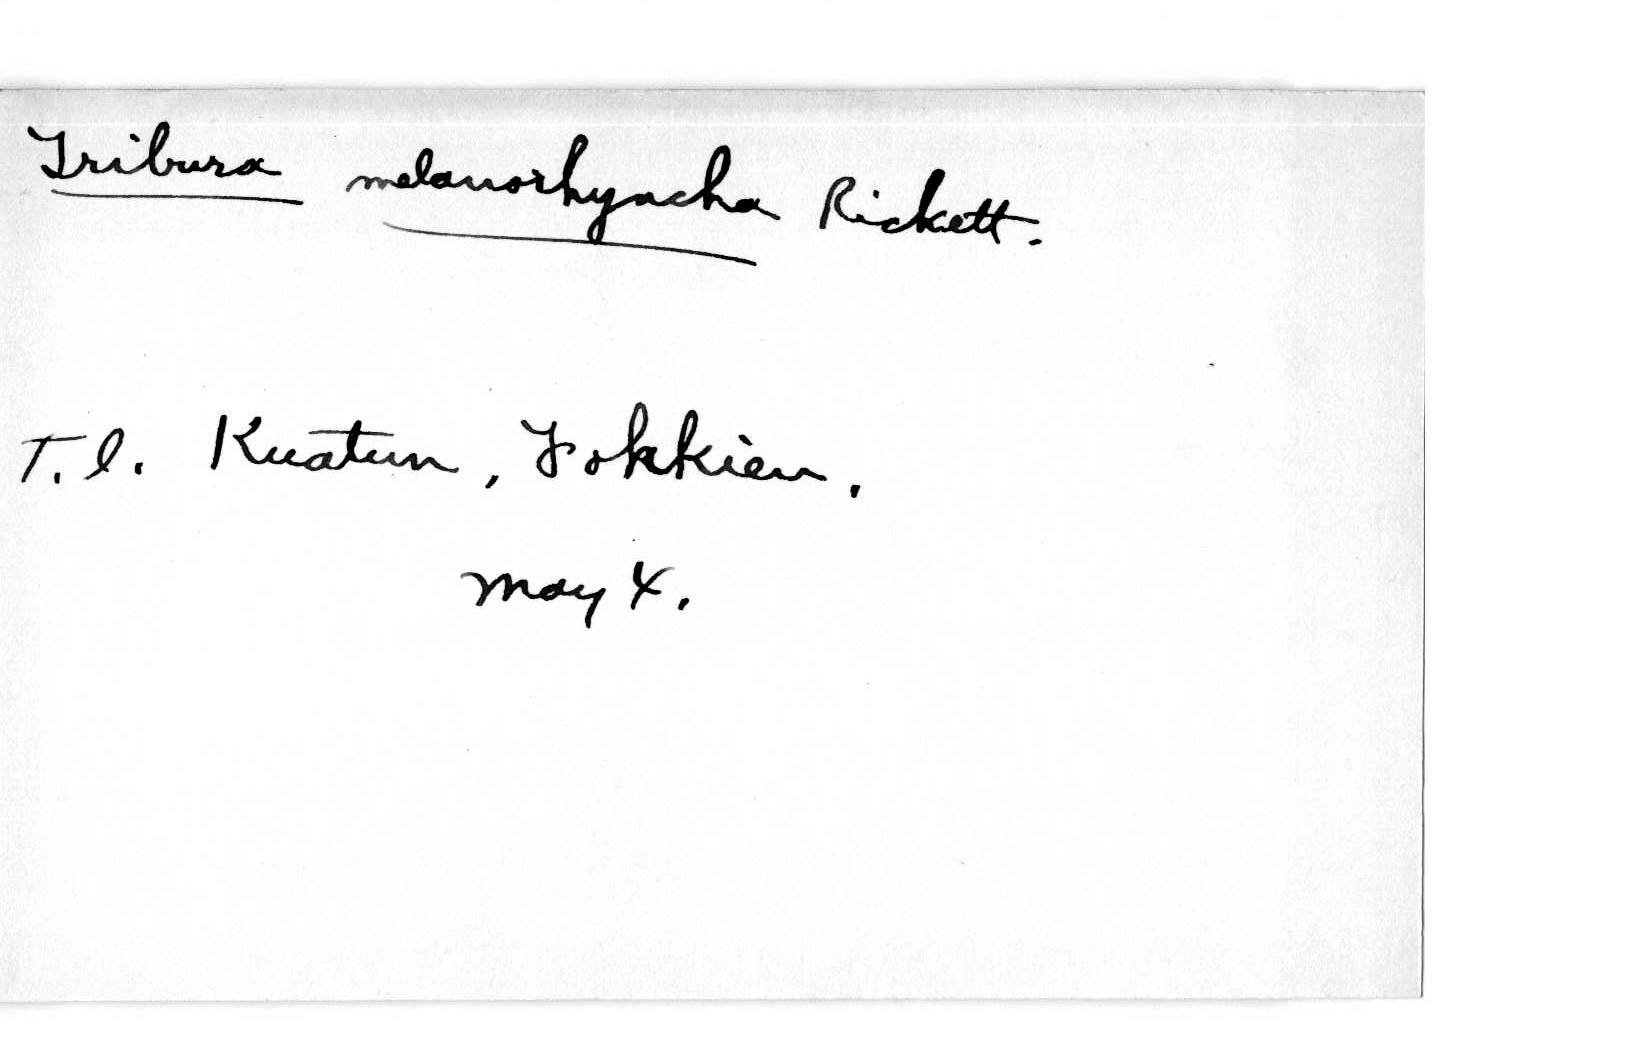 Tribura melanorhyncha Rickett.
T. l. Kuatun, Fokkien.
May 4.